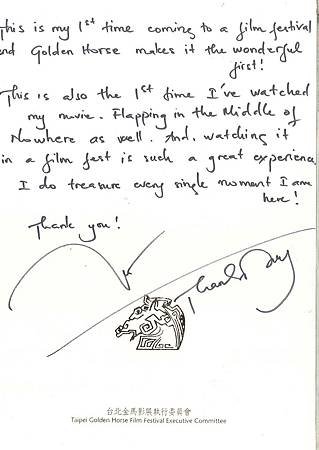 This is my 1st time coming to a film festival
and Golden Horse makes it the wonderful
first!
This is also the 1st time I've watched
my movie. Flapping in the Middle of
Nowhere as well. And, watching it
in a film fest is such a great experience
I do treasure every single moment I am
here!
Thank you!
台北金馬影展執行委員會
Taipei Golden Horse Film Festival Executive Committee